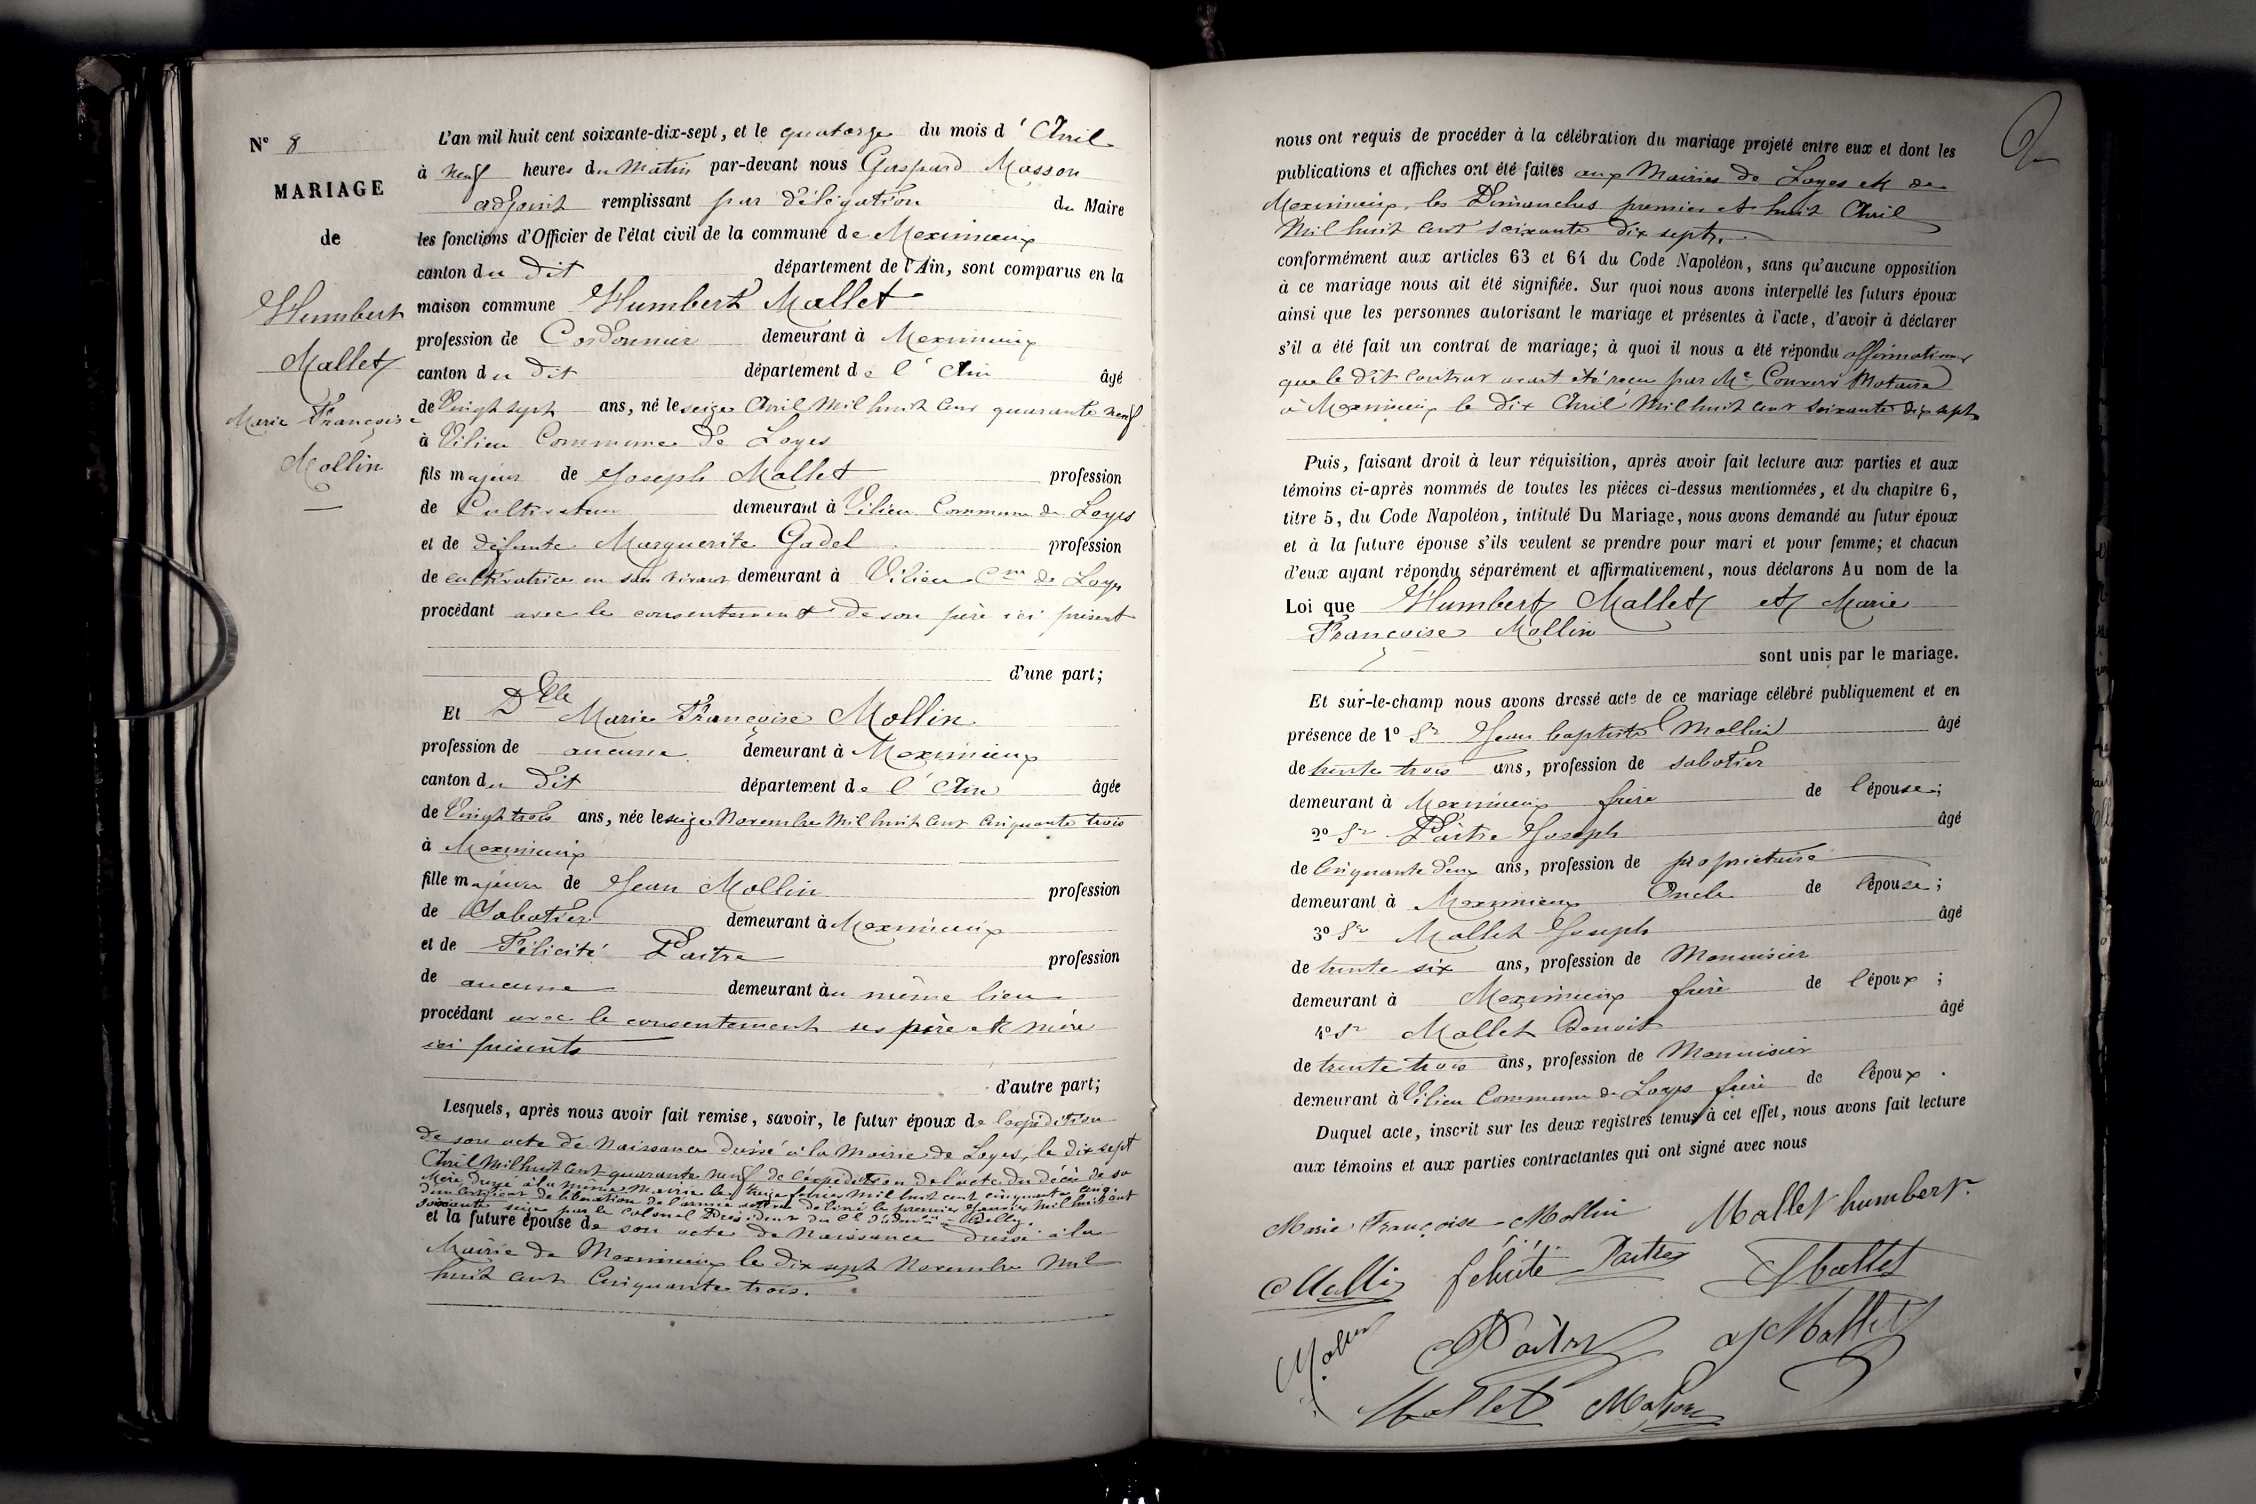 N° 8
MARIAGE
de
Humbert
Mallet
Marie Françoise
Mollin
L'an mil huit cent soixante-dix-sept, et le quatorze du mois d'Avril
à neuf heures du Matin par-devant nous Gaspard Masson
adjoint remplissant par délégation du Maire
les fonctions d'Officier de l'état civil de la commune de Meximieux
canton du dit département de l'Ain, sont comparus en la
maison commune Humbert Mallet
profession de Cordonnier demeurant à Meximieux
canton du dit département de l'Ain âgé
de Vingt sept ans, né le seize Avril Mil huit cent quarante neuf
à Vilieu Commune de Loyes
fils majeur de Joseph Mallet profession
de Cultivateur demeurant à Vilieu Commune de Loyes
et de défunte Marguerite Gadel profession
de cultivatrice en son vivant demeurant à Vilieu Cne de Loyes
procédant avec le consentement de son père ici présent
d'une part;
Et Dlle Marie Françoise Mollin
profession de aucune demeurant à Meximieux
canton du dit département de l'Ain âgée
de Vingt trois ans, née le seize Novembre Mil huit cent cinquante trois
à Meximieux
fille majeure de Jean Mollin profession
de Sabotier demeurant à Meximieux
et de Félicité Paitre profession
de aucune demeurant au même lieu
procédant avec le consentement ses père et mère
ici présents
d'autre part;
Lesquels, après nous avoir fait remise, savoir, le futur époux de l'expédition
de son acte de Naissance dressé à la Mairie de Loyes, le dix sept
Avril Mil huit cent quarante neuf de l'expédition de l'acte du décès de sa
Mère dressé à la même Mairie le treize février Mil huit cent cinquante cinq
d'un certificat de libération de l'armée active délivré le premier Janvier Mil huit cent
soixante seize par le Colonel Président du Cl d'admon à Belley.
et la future épouse de son acte de Naissance dressé à la
Mairie de Meximieux le dix sept Novembre Mil
huit cent Cinquante trois.
nous ont requis de procéder à la célébration du mariage projeté entre eux et dont les
publications et affiches ont été faites aux Mairies de Loyes et de
Meximieux, les Dimanches premier et huit Avril
Mil huit cent soixante dix sept.
conformément aux articles 63 et 64 du Code Napoléon, sans qu'aucune opposition
à ce mariage nous ait été signifiée. Sur quoi nous avons interpellé les futurs époux
ainsi que les personnes autorisant le mariage et présentes à l'acte, d'avoir à déclarer
s'il a été fait un contrat de mariage; à quoi il nous a été répondu affirmativement
que le dit contrat avait été reçu par Me Convert Notaire
à Meximieux le dix Avril Mil huit cent soixante dix sept
Puis, faisant droit à leur réquisition, après avoir fait lecture aux parties et aux
témoins ci-après nommés de toutes les pièces ci-dessus mentionnées, et du chapitre 6,
titre 5, du Code Napoléon, intitulé Du Mariage, nous avons demandé au futur époux
et à la future épouse s'ils veulent se prendre pour mari et pour femme; et chacun
d'eux ayant répondu séparément et affirmativement, nous déclarons Au nom de la
Loi que Humbert Mallet et Marie
Françoise Mollin
sont unis par le mariage.
Et sur-le-champ nous avons dressé acte de ce mariage célébré publiquement et en
présence de 1° Sr Jean baptiste Mollin âgé
de trente trois ans, profession de sabotier
demeurant à Meximieux frère de l'épouse;
2° Sr Paitre Joseph âgé
de Cinquante deux ans, profession de propriétaire
demeurant à Meximieux Oncle de l'épouse;
3° Sr Mallet Joseph âgé
de trente six ans, profession de Menuisier
demeurant à Meximieux frère de l'époux;
4° Sr Mallet Benoit âgé
de trente trois ans, profession de Menuisier
demeurant à Vilieu Commune de Loyes frère de l'époux.
Duquel acte, inscrit sur les deux registres tenus à cet effet, nous avons fait lecture
aux témoins et aux parties contractantes qui ont signé avec nous
Marie Françoise Mollin Mallet humbert
Molli félicité Paitre Mallet
Mollin Paitre Mallet
Mallet Masson